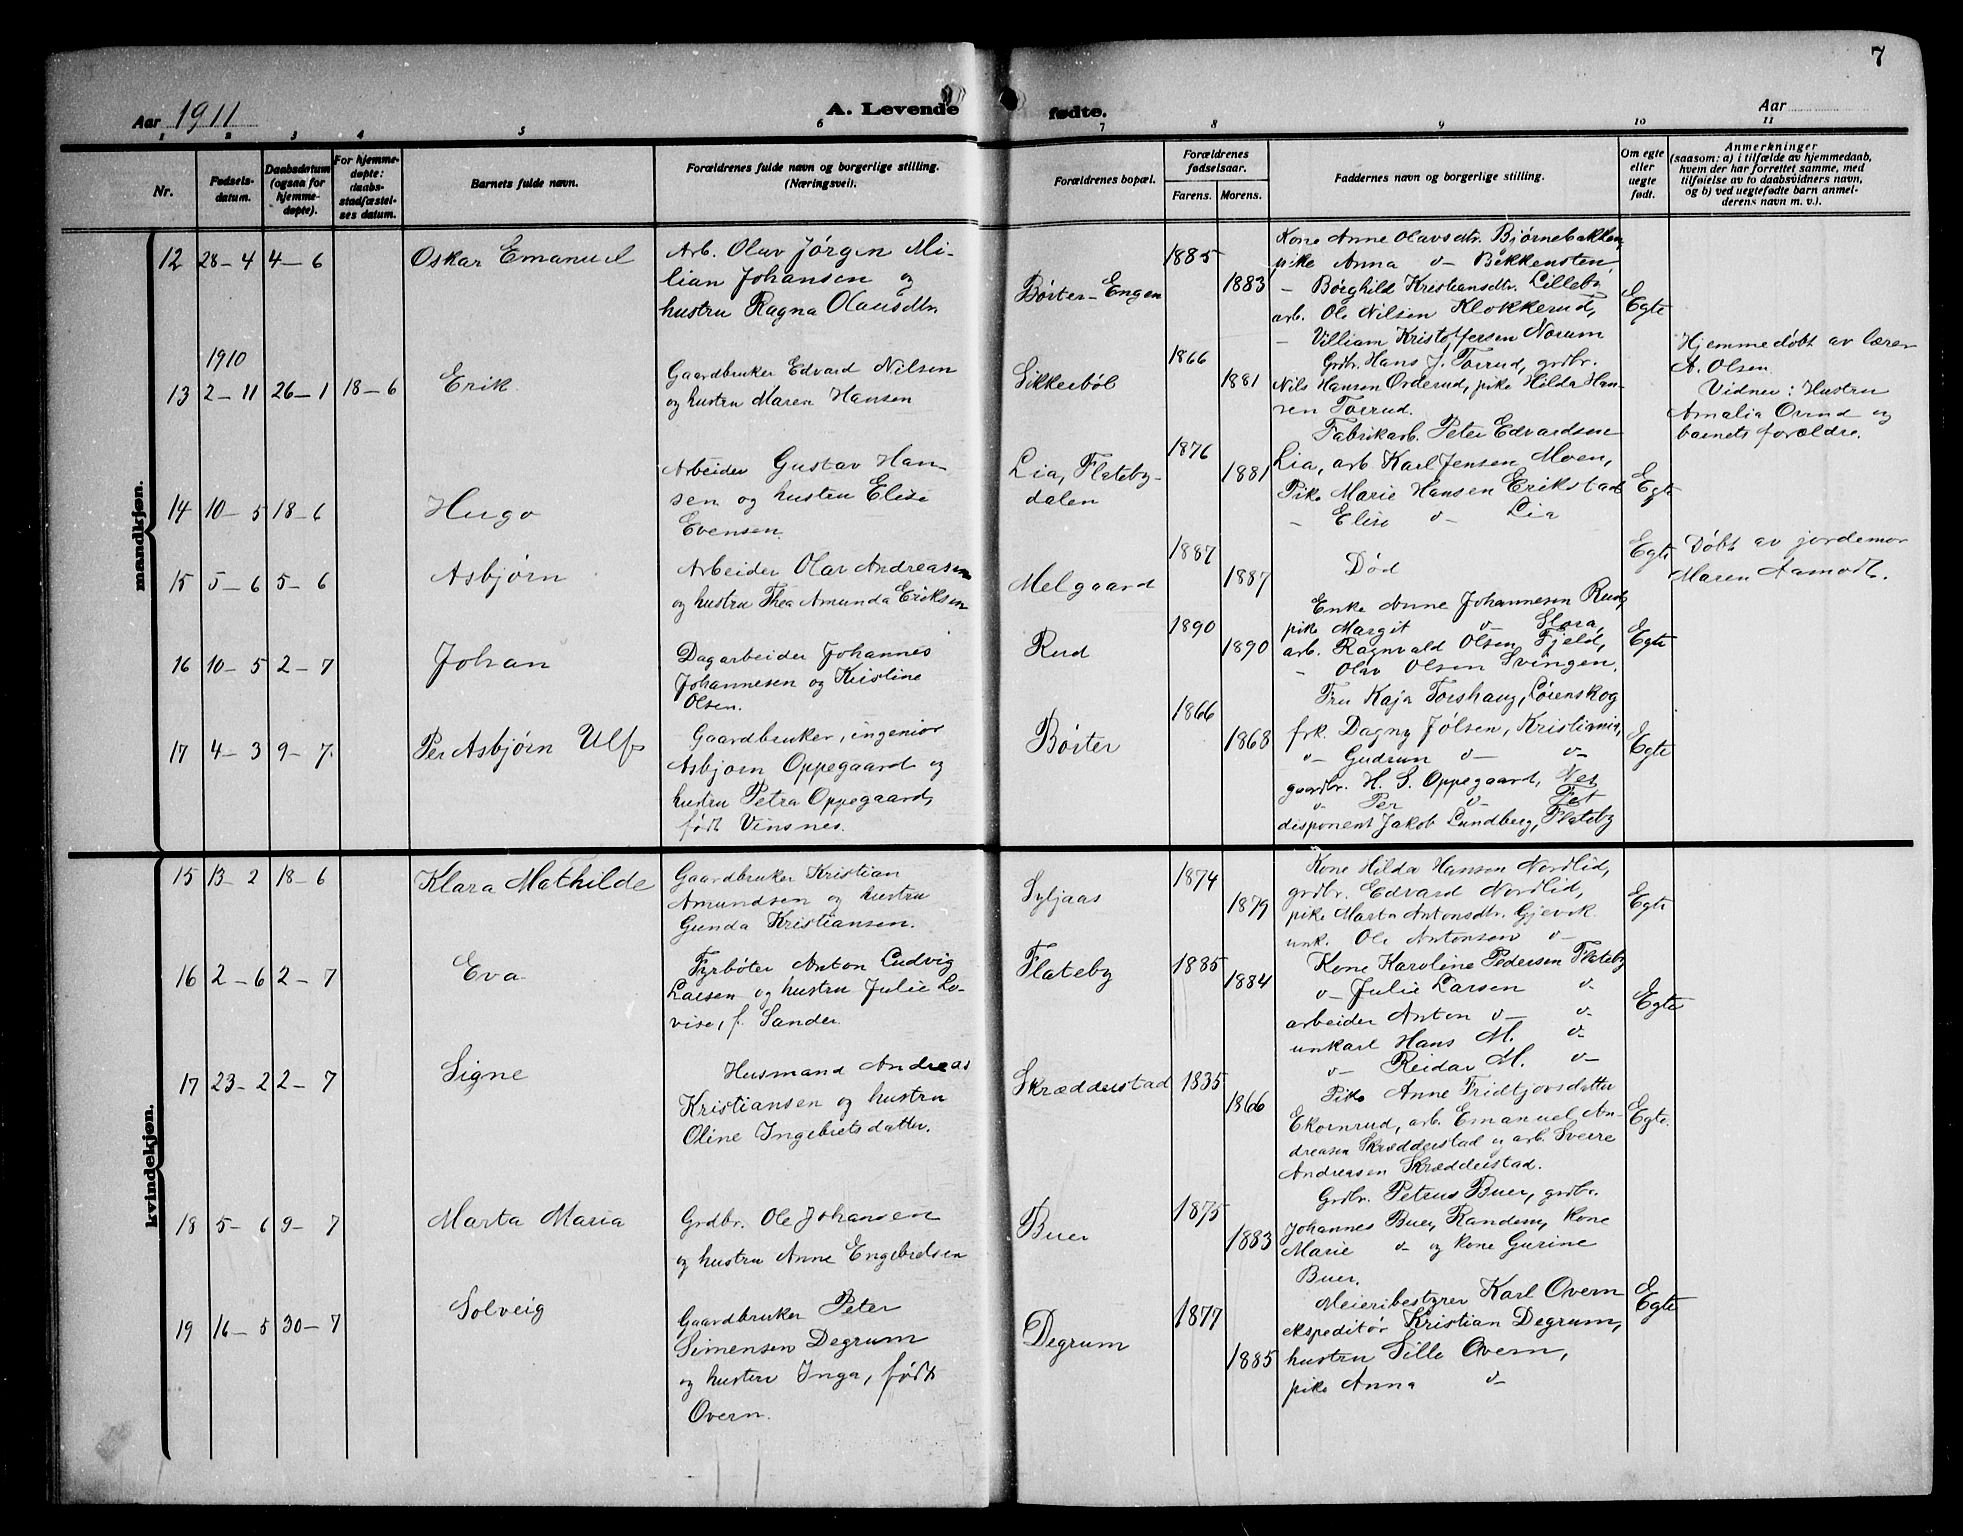 7
Aar 1911
A. Levende
fødte.
Aar
1 2 3 4 5 6 7 8 9 10 11
Nr.
Fødsels-
datum.
Daabsdatum
(ogsaa for
hjemme-
døpte).
For hjemme-
døpte:
daabs-
stadfæstel-
ses datum.
Barnets fulde navn.
Forældrenes fulde navn og borgerlige stilling.
(Næringsvei).
Forældrenes bopæl.
Forældrenes
fødselsaar.
Farens. Morens.
Faddernes navn og borgerlige stilling.
Om egte
eller
uegte
født.
Anmerkninger
(saasom: a) i tilfælde av hjemmedaab,
hvem der har forrettet samme, med
tilføielse av to daabsvidners navn,
og b) ved uegtefødte barn anmel-
derens navn m. v.).
mandkjøn.
12 28-4 4-6
Oskar Emanuel
Arb. Olav Jørgen Mi-
lian Johansen og
hustru Ragna Olausdtr.
Børter-Engen
1885
1883
Kone Anne Olavsdtr. Bjørnebakken,
pike Anna v- Bikkensten,
- Borghild Kristiansdtr. Lilleby,
arb. Ole Nilsen Klokkerud,
- Villiam Kristoffersen Norum
Egte
1910
13 2-11 26-1 18-6
Erik
Gaardbruker Edvard Nilsen
og hustru Maren Hansen
Sikkerbøl
1866
1881
Grdbr. Hans J. Torrud, grdbr.
Nils Hansen Orderud, pike Hilda Han-
sen Torrud.
Hjemmedøbt av lærer
A. Olsen.
Vidner: Hustru
Amalia Ovind og
barnets forældre.
14 10-5 18-6
Hugo
Arbeider Gustav Han
sen og hustru Elise
Evensen.
Lia, Flateby-
dalen
1876
1881
Fabrikarb. Peter Edvardsen
Lia, arb. Karl Jensen Moen,
Pike Marie Hansen Erikstad
- Elise v- Lia
Egte
15 5-6 5-6
Asbjørn
Arbeider Olav Andreasen
og hustru Thea Amunda Eriksen
Melgaard
1887
1887
Død
Egte
Døbt av jordemor
Maren Aamodt.
16 10-5 2-7
Johan
Dagarbeider Johannes
Johannesen og Kristine
Olsen.
Rud
1890
1890
Enke Anne Johannesen Rud,
pike Margit v- Slora,
arb. Ragnvald Olsen Fjeld,
- Olav Olsen Svingen.
Egte
17 4-3 9-7.
Per Asbjørn Ulf
Gaardbruker, ingeniør
Asbjørn Oppegaard og
hustru Petra Oppegaard,
født Vinsnes.
Børter
1866
1868
Fru Kaja Torshaug, Lørenskog
frk. Dagny Jølsen, Kristiania,
v- Gudrun v- v-
gaardbr. H. S. Oppegaard, Nes
v- Per v- Fet
disponent Jakob Lundberg, Flateby
Egte
kvindekjøn.
15 13-2 18-6
Klara Mathilde
Gaardbruker Kristian
Amundsen og hustru
Gunda Kristiansen.
Syljaas
1874
1879
Kone Hilda Hansen Nordlid,
grdbr. Edvard Nordlid,
pike Marta Antonsdtr. Gjevik
unk. Ole Antonsen v-
Egte
16 2-6 2-7
Eva
Fyrbøter Anton Ludvig
Larsen og hustru Julie Lo-
vise, f. Sander.
Flateby
1885
1884
Kone Karoline Pedersen Flateby
v- Julie Larsen v-
arbeider Anton v- v-
unkarl Hans M. v-
v- Reidar M. v-
Egte
17 23-2 2-7
Signe
Husmand Andreas
Kristiansen og hustru
Oline Ingebretsdatter.
Skrædderstad
1835
1866
Pike Anne Fridtjovsdatter
Ekornrud, arb. Emanuel An-
dreasen Skrædderstad og arb. Sverre
Andreasen Skrædderstad.
Egte.
18 5-6 9-7
Marta Maria
Grdbr. Ole Johansen
og hustru Anne Engebretsen
Buer
1875
1883
Grdbr. Petrus Buer, grdbr.
Johannes Buer, Randem, kone
Marie v- og kone Gurine
Buer.
19 16-5 30-7
Solveig
Gaardbruker Peter
Simensen Degrum
og hustru Inga, født
Overn.
Degrum
1877
1885
Meieribestyrer Karl Overn
ekspeditør Kristian Degrum,
hustru Sille Overn,
pike Anna v-
Egte